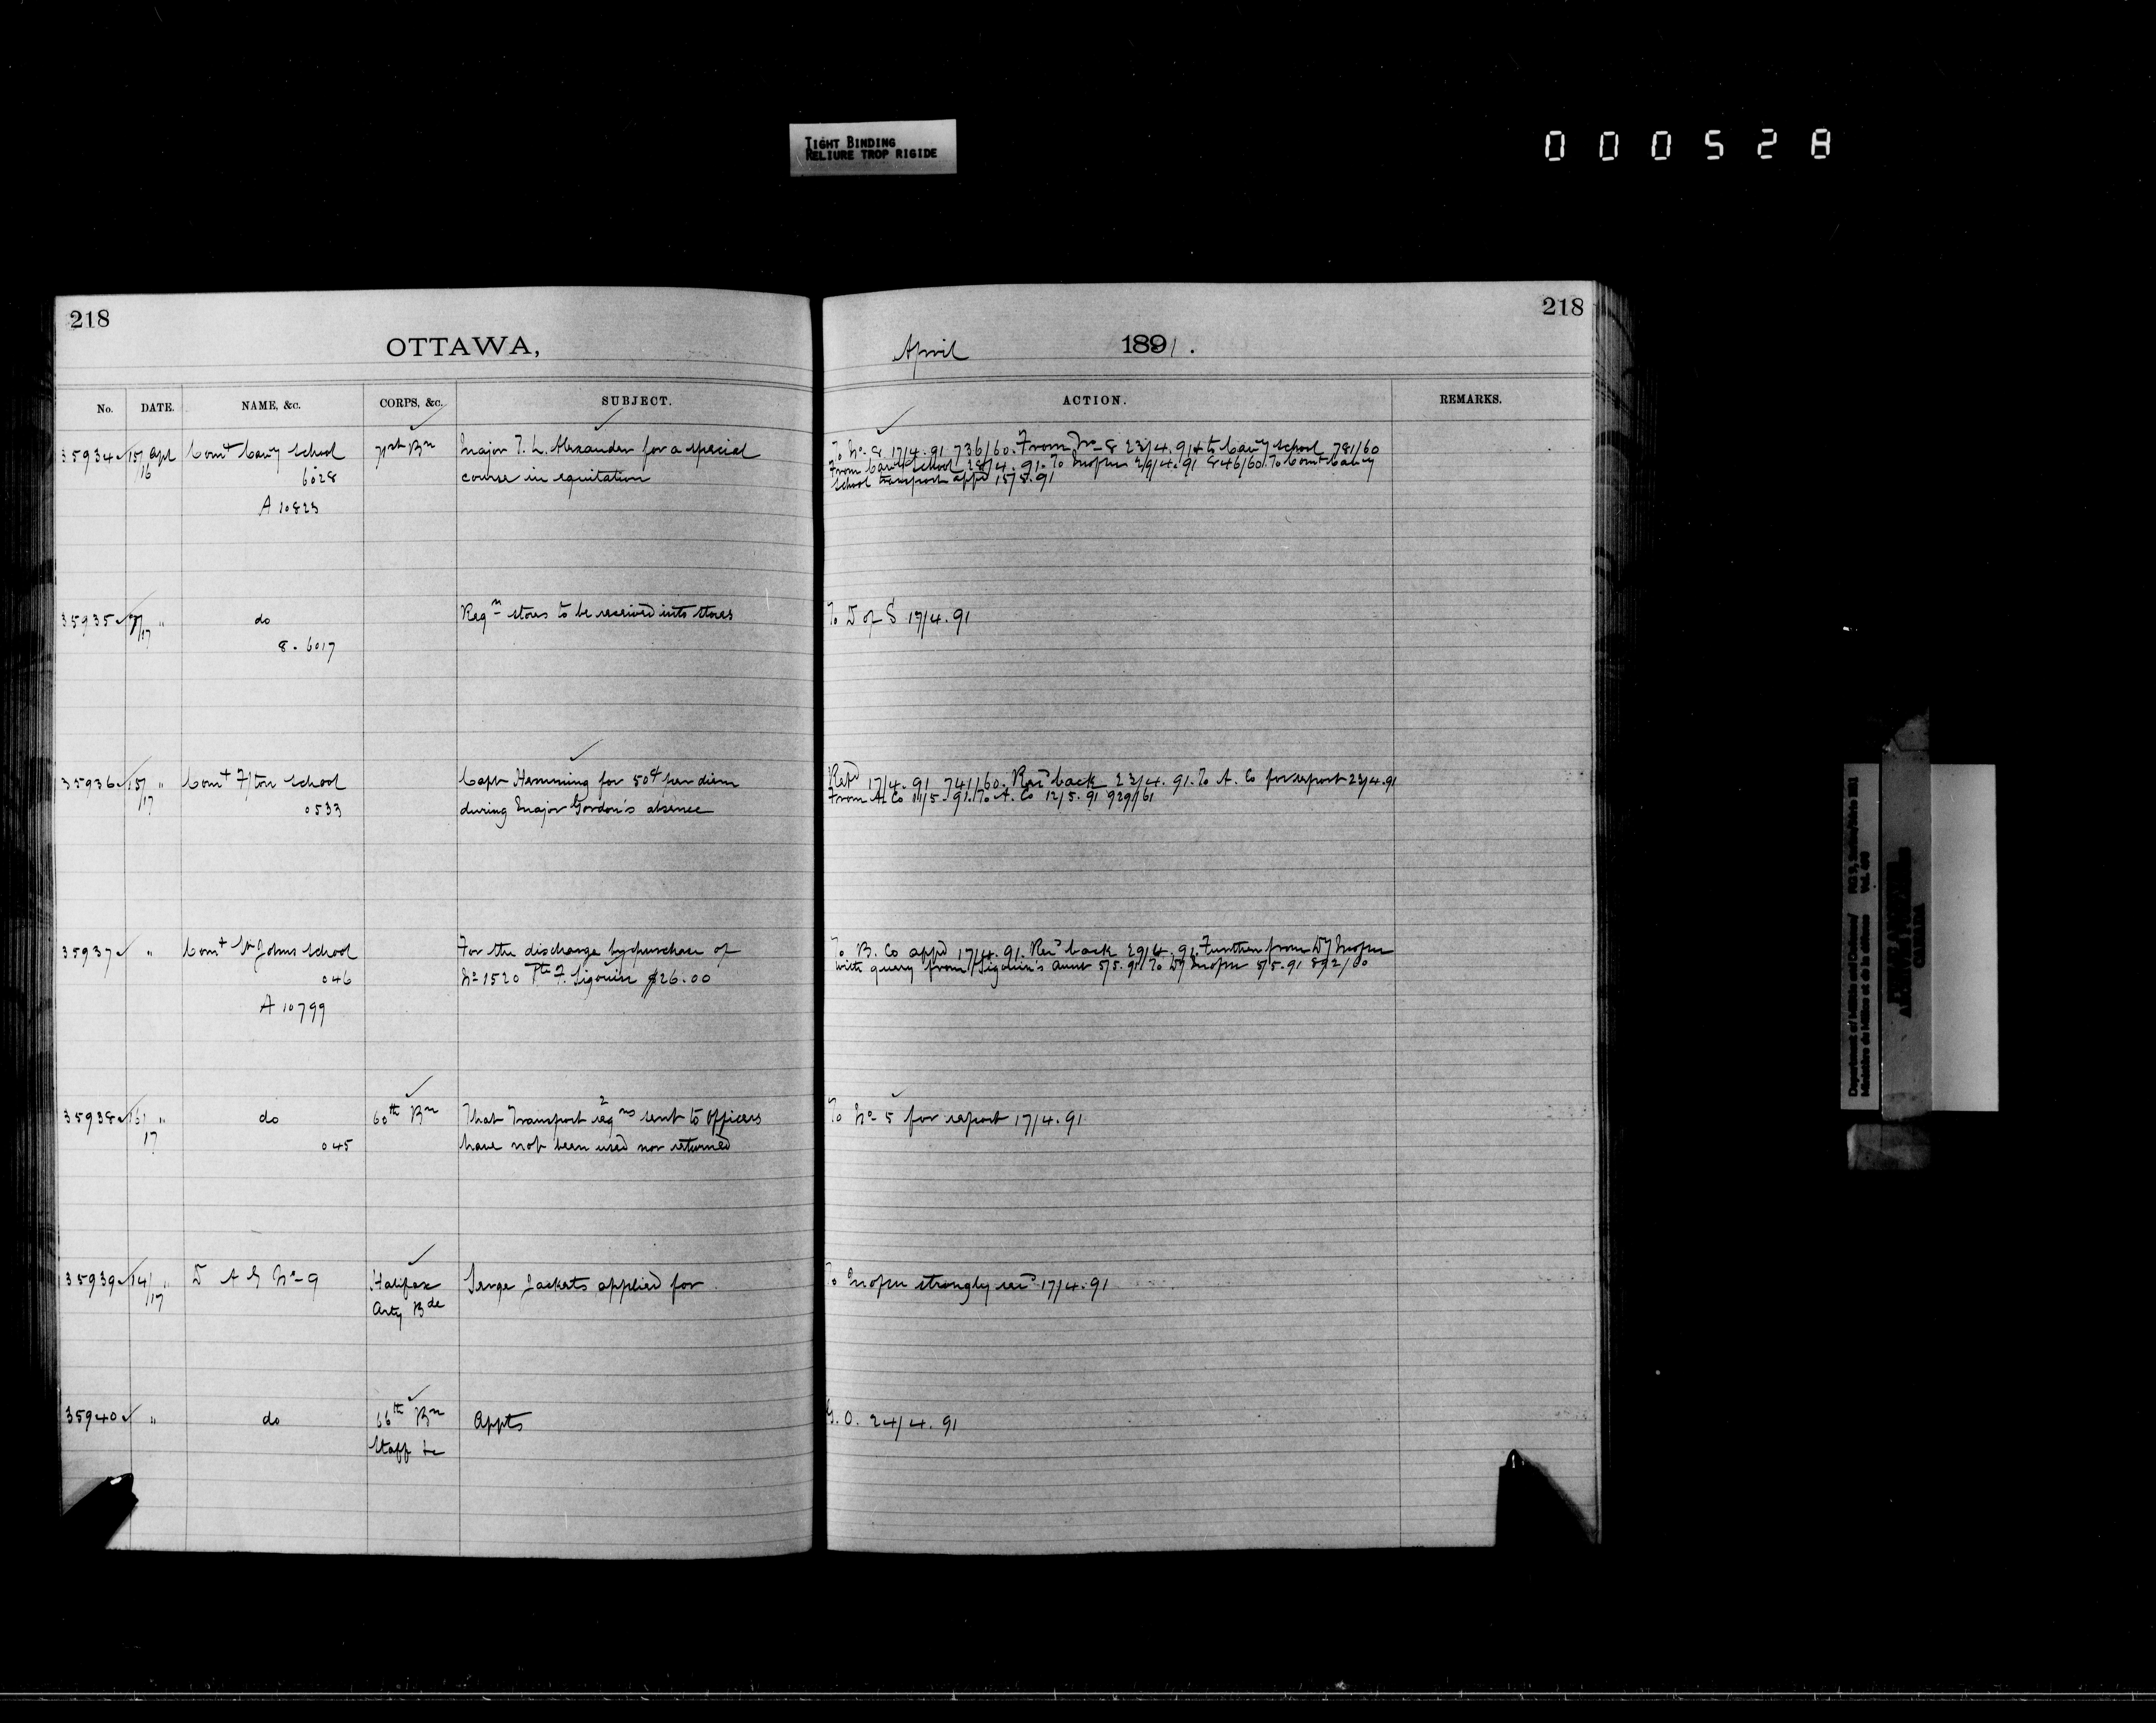 TIGHT BINDING
RELIURE TROP RIGIDE
000528
218
OTTAWA,
No. DATE. NAME, &c. CORPS, &c. SUBJECT.
35934 15/16 Apl Comt Cavy School 71st Bn Major T. L. Alexander for a special
6028 course in equitation
A 10823
35935 /17 " do Reqn stores to be received into stores
8. 6017
35936 15/17 " Comt F/ton School Capt Hemming for 50¢ per diem
0533 during Major Gordon's absence
35937 " Comt St Johns School For the discharge by purchase of
046 No 1520 Pte F. Sigouin $26.00
A 10799
35938 16/17 " do 60th Bn That 2 Transport reqns sent to officers
045 have not been used nor returned
35939 14/17 " D A G No 9 Halifax Serge Jackets applied for
Arty Bde
35940 " do 66th Bn Appts
Staff &c
218
April 1891.
ACTION. REMARKS.
To No 8 17/4.91 736/60. From No 8 23/4.91 & to Cavy School 781/60
From Cavy School 28/4.91. To 2/9/4.91 846/60. To Comt Cavy
School transport appd 15/8.91
To D of S 17/4.91
Retd 17/4.91 741/60. Recd back 23/4.91. To A. Co for report 23/4.91
From A. Co 11/5.91. To A. Co 12/5.91 929/61
To B. Co appd 17/4.91. Recd back 29/4.91. Further from Dy
with query from Sigouin's aunt 5/5.91 To Dy 5/5.91 892/60
To No 5 for report 17/4.91
To strongly recd 17/4.91
G. O. 24/4.91
Department of Militia and Defence/
Ministère de la Milice et de la défense